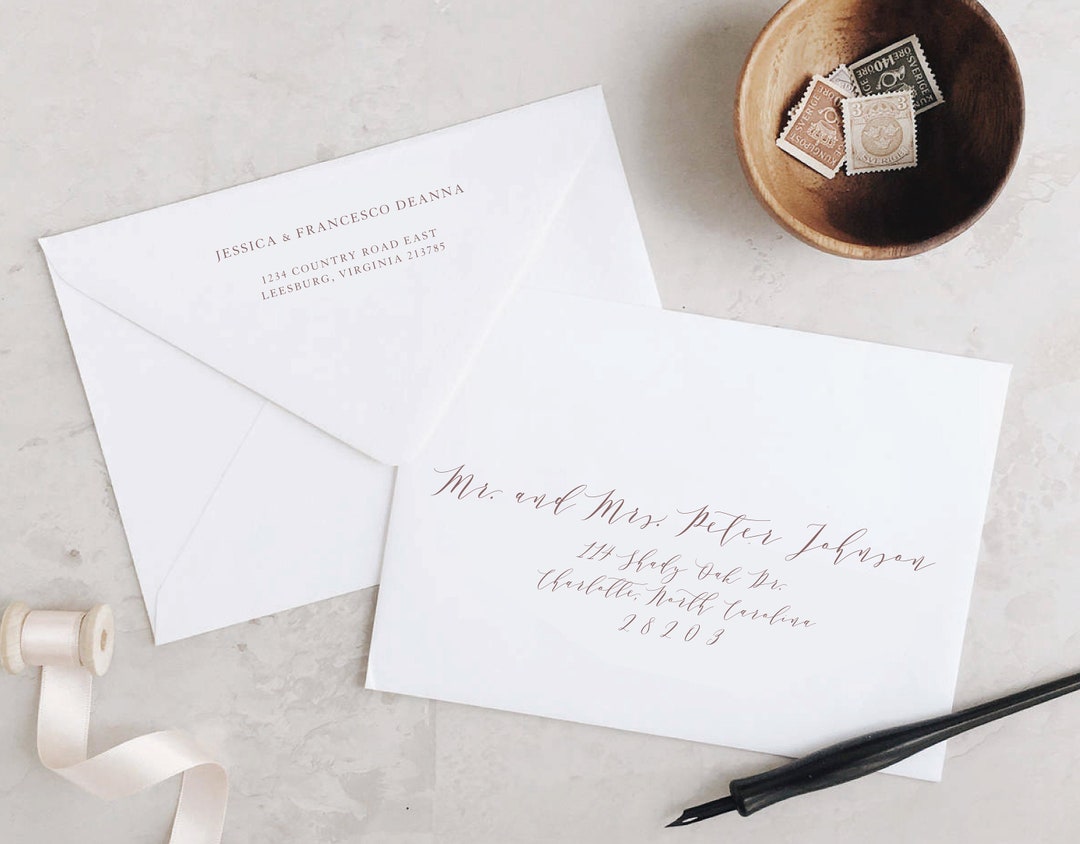 JESSICA & FRANCESCO DEANNA
1234 COUNTRY ROAD EAST
LEESBURG, VIRGINIA 213785
Mr. and Mrs. Peter Johnson
114 Shady Oak Dr.
Charlotte, North Carolina
28203
ÖRE 140 ÖRE
SVERIGE
SVERIGE
KUNGLPOST
3 3
SVERIGE